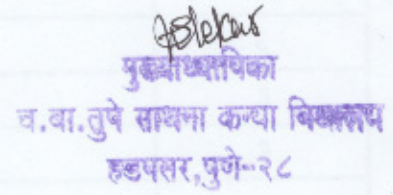 मुख्याध्यापिका
च.बा.तुपे साधना कन्या विद्यालय
हडपसर,पुणे-२८